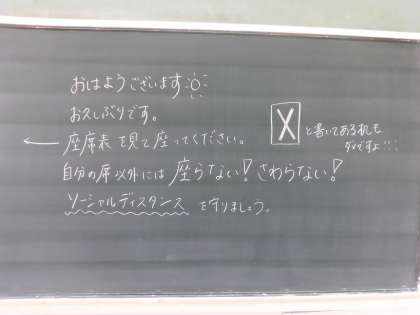 おはようございます
お久しぶりです。
← 座席表を見て座ってください。
X と書いてある机も
ダメですよ!!!
自分の席以外には座らない!さわらない!
ソーシャルディスタンスを守りましょう。